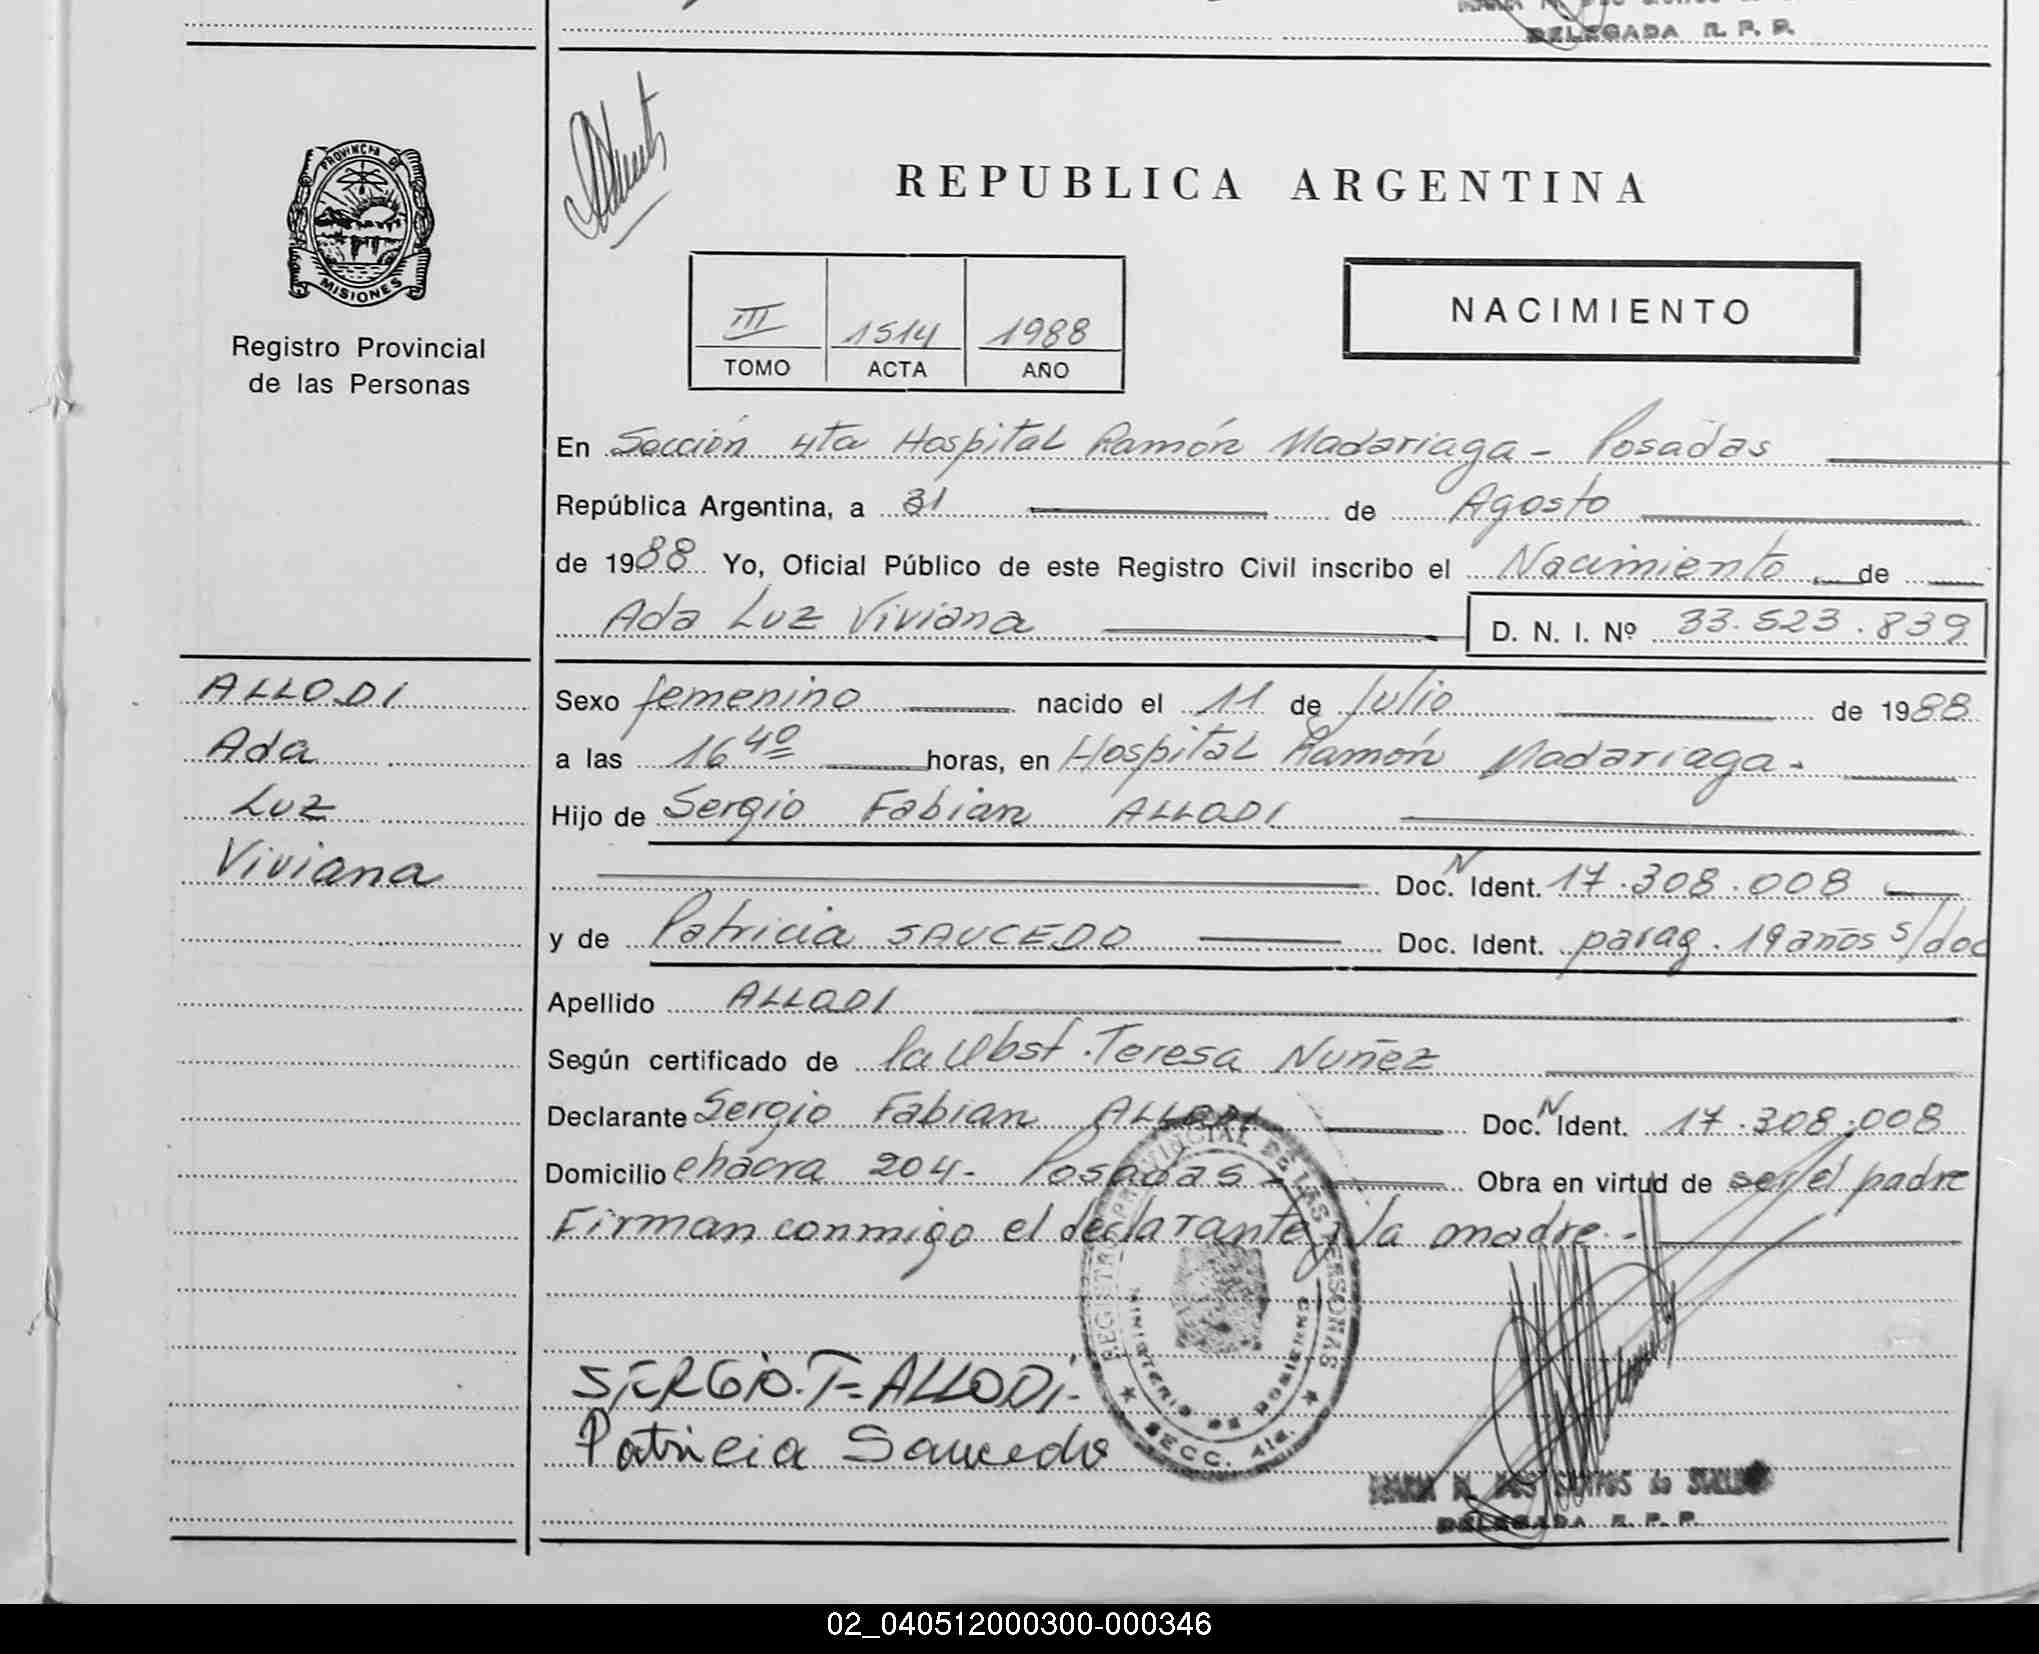 DELEGADA R. P. P.
PROVINCIA DE
MISIONES
Registro Provincial
de las Personas
REPUBLICA ARGENTINA
III 1514 1988
TOMO ACTA AÑO
NACIMIENTO
En Sección 4ta Hospital Ramón Madariaga - Posadas
República Argentina, a 31 de Agosto
de 1988 Yo, Oficial Público de este Registro Civil inscribo el Nacimiento de
Ada Luz Viviana D. N. I. Nº 33.523.839
ALLODI
Ada
Luz
Viviana
Sexo femenino nacido el 11 de Julio de 1988
a las 16 40 horas, en Hospital Ramón Madariaga.
Hijo de Sergio Fabian ALLODI
Doc. N Ident. 17.308.008
y de Patricia SAUCEDO Doc. Ident. parag. 19 años s/doc
Apellido ALLODI
Según certificado de la Obst. Teresa Nuñez
Declarante Sergio Fabian ALLODI Doc. N Ident. 17.308.008
Domicilio chacra 204 - Posadas - Obra en virtud de ser el padre
Firman conmigo el declarante y la madre. -
REGISTRO PROVINCIAL DE LAS PERSONAS
MINISTERIO DE GOBIERNO
SECC. 4ta.
SERGIO. F. ALLODI.
Patricia Saucedo
DELEGADA R. P. P.
02_040512000300-000346